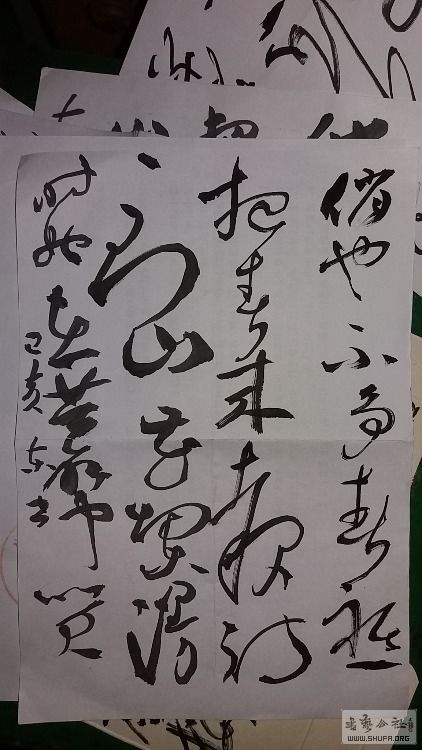 俏也不争春祇
把春来报待
到山花烂漫
时她在叢中笑
己亥
书艺公社
WWW.SHUFA.ORG